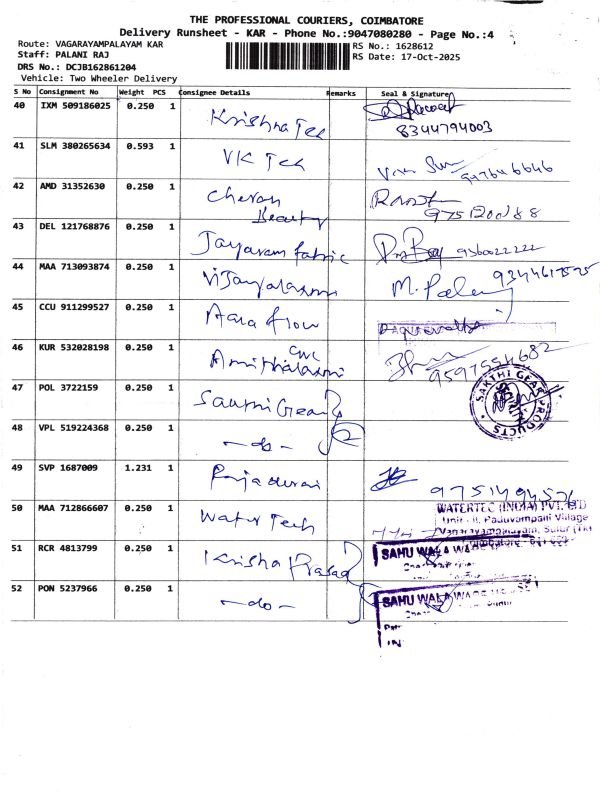 THE PROFESSIONAL COURIERS, COIMBATORE
Delivery Runsheet - KAR - Phone No.:9047080280 - Page No.:4
Route: VAGARAYAMPALAYAM KAR
RS No.: 1628612
Staff: PALANI RAJ
RS Date: 17-Oct-2025
DRS No.: DCJB162861204
Vehicle: Two Wheeler Delivery
S No Consignment No Weight PCS Consignee Details Remarks Seal & Signature
40 IXM 509186025 0.250 1 Krishna Tec
8344794003
41 SLM 380265634 0.593 1 VK Tec
42 AMD 31352630 0.250 1 Cheran
Beauty
43 DEL 121768876 0.250 1 Jayaram fabric
44 MAA 713093874 0.250 1 Vijayalaxmi M. Palan
45 CCU 911299527 0.250 1 Aara flow
46 KUR 532028198 0.250 1 9597554682
47 POL 3722159 0.250 1 Sakthi Gear
SAKTHI GEAR PRODUCTS
48 VPL 519224368 0.250 1 -do-
49 SVP 1687009 1.231 1 Rajadurai
50 MAA 712866607 0.250 1 Water Tech
WATERTEC (INDIA) PVT. LTD
Unit - II, Paduvampalli Village
51 RCR 4813799 0.250 1 Krisha Prasad
SAHU WALA
52 PON 5237966 0.250 1 -do-
SAHU WALA